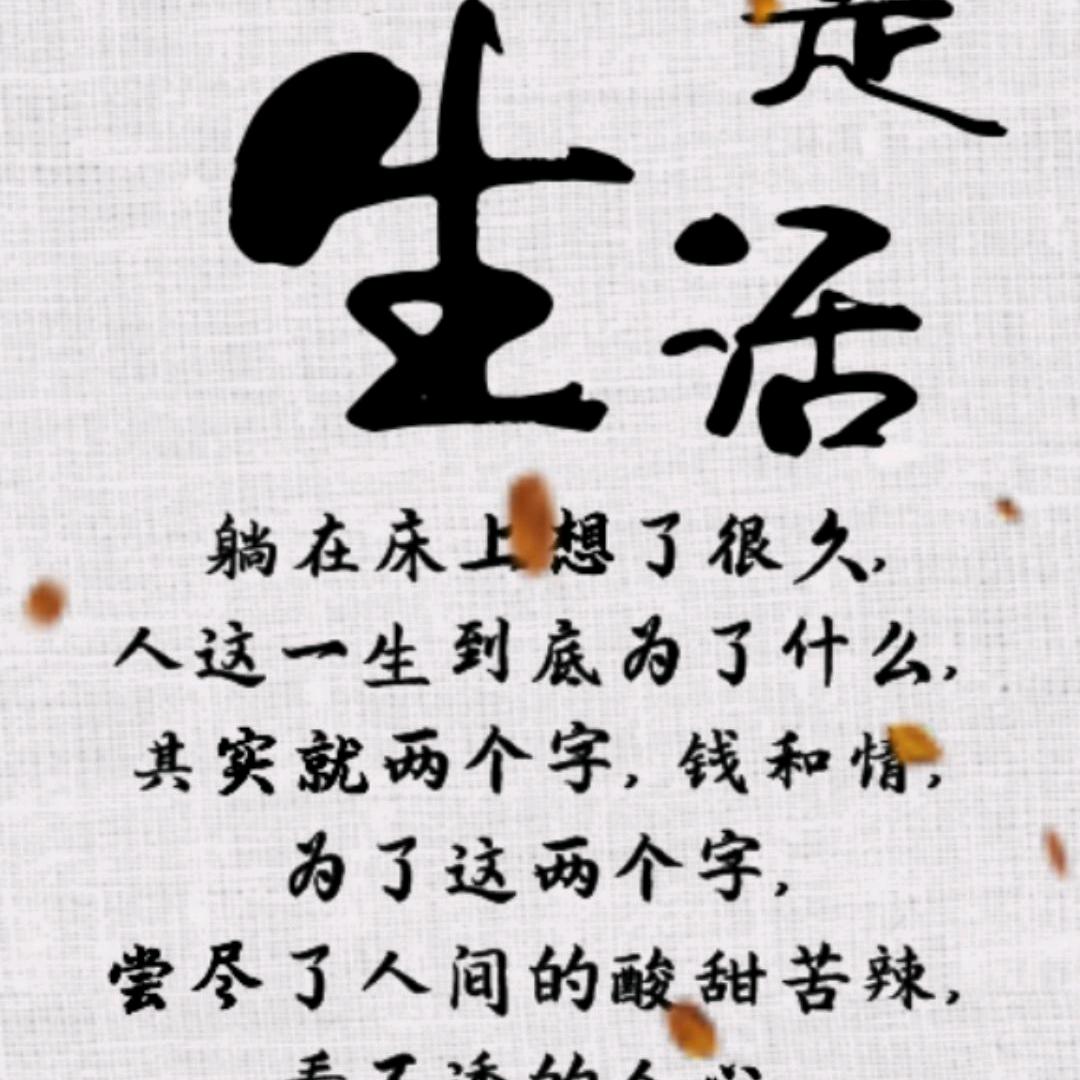 是
生活
躺在床上想了很久,
人这一生到底为了什么,
其实就两个字,钱和情,
为了这两个字,
尝尽了人间的酸甜苦辣,